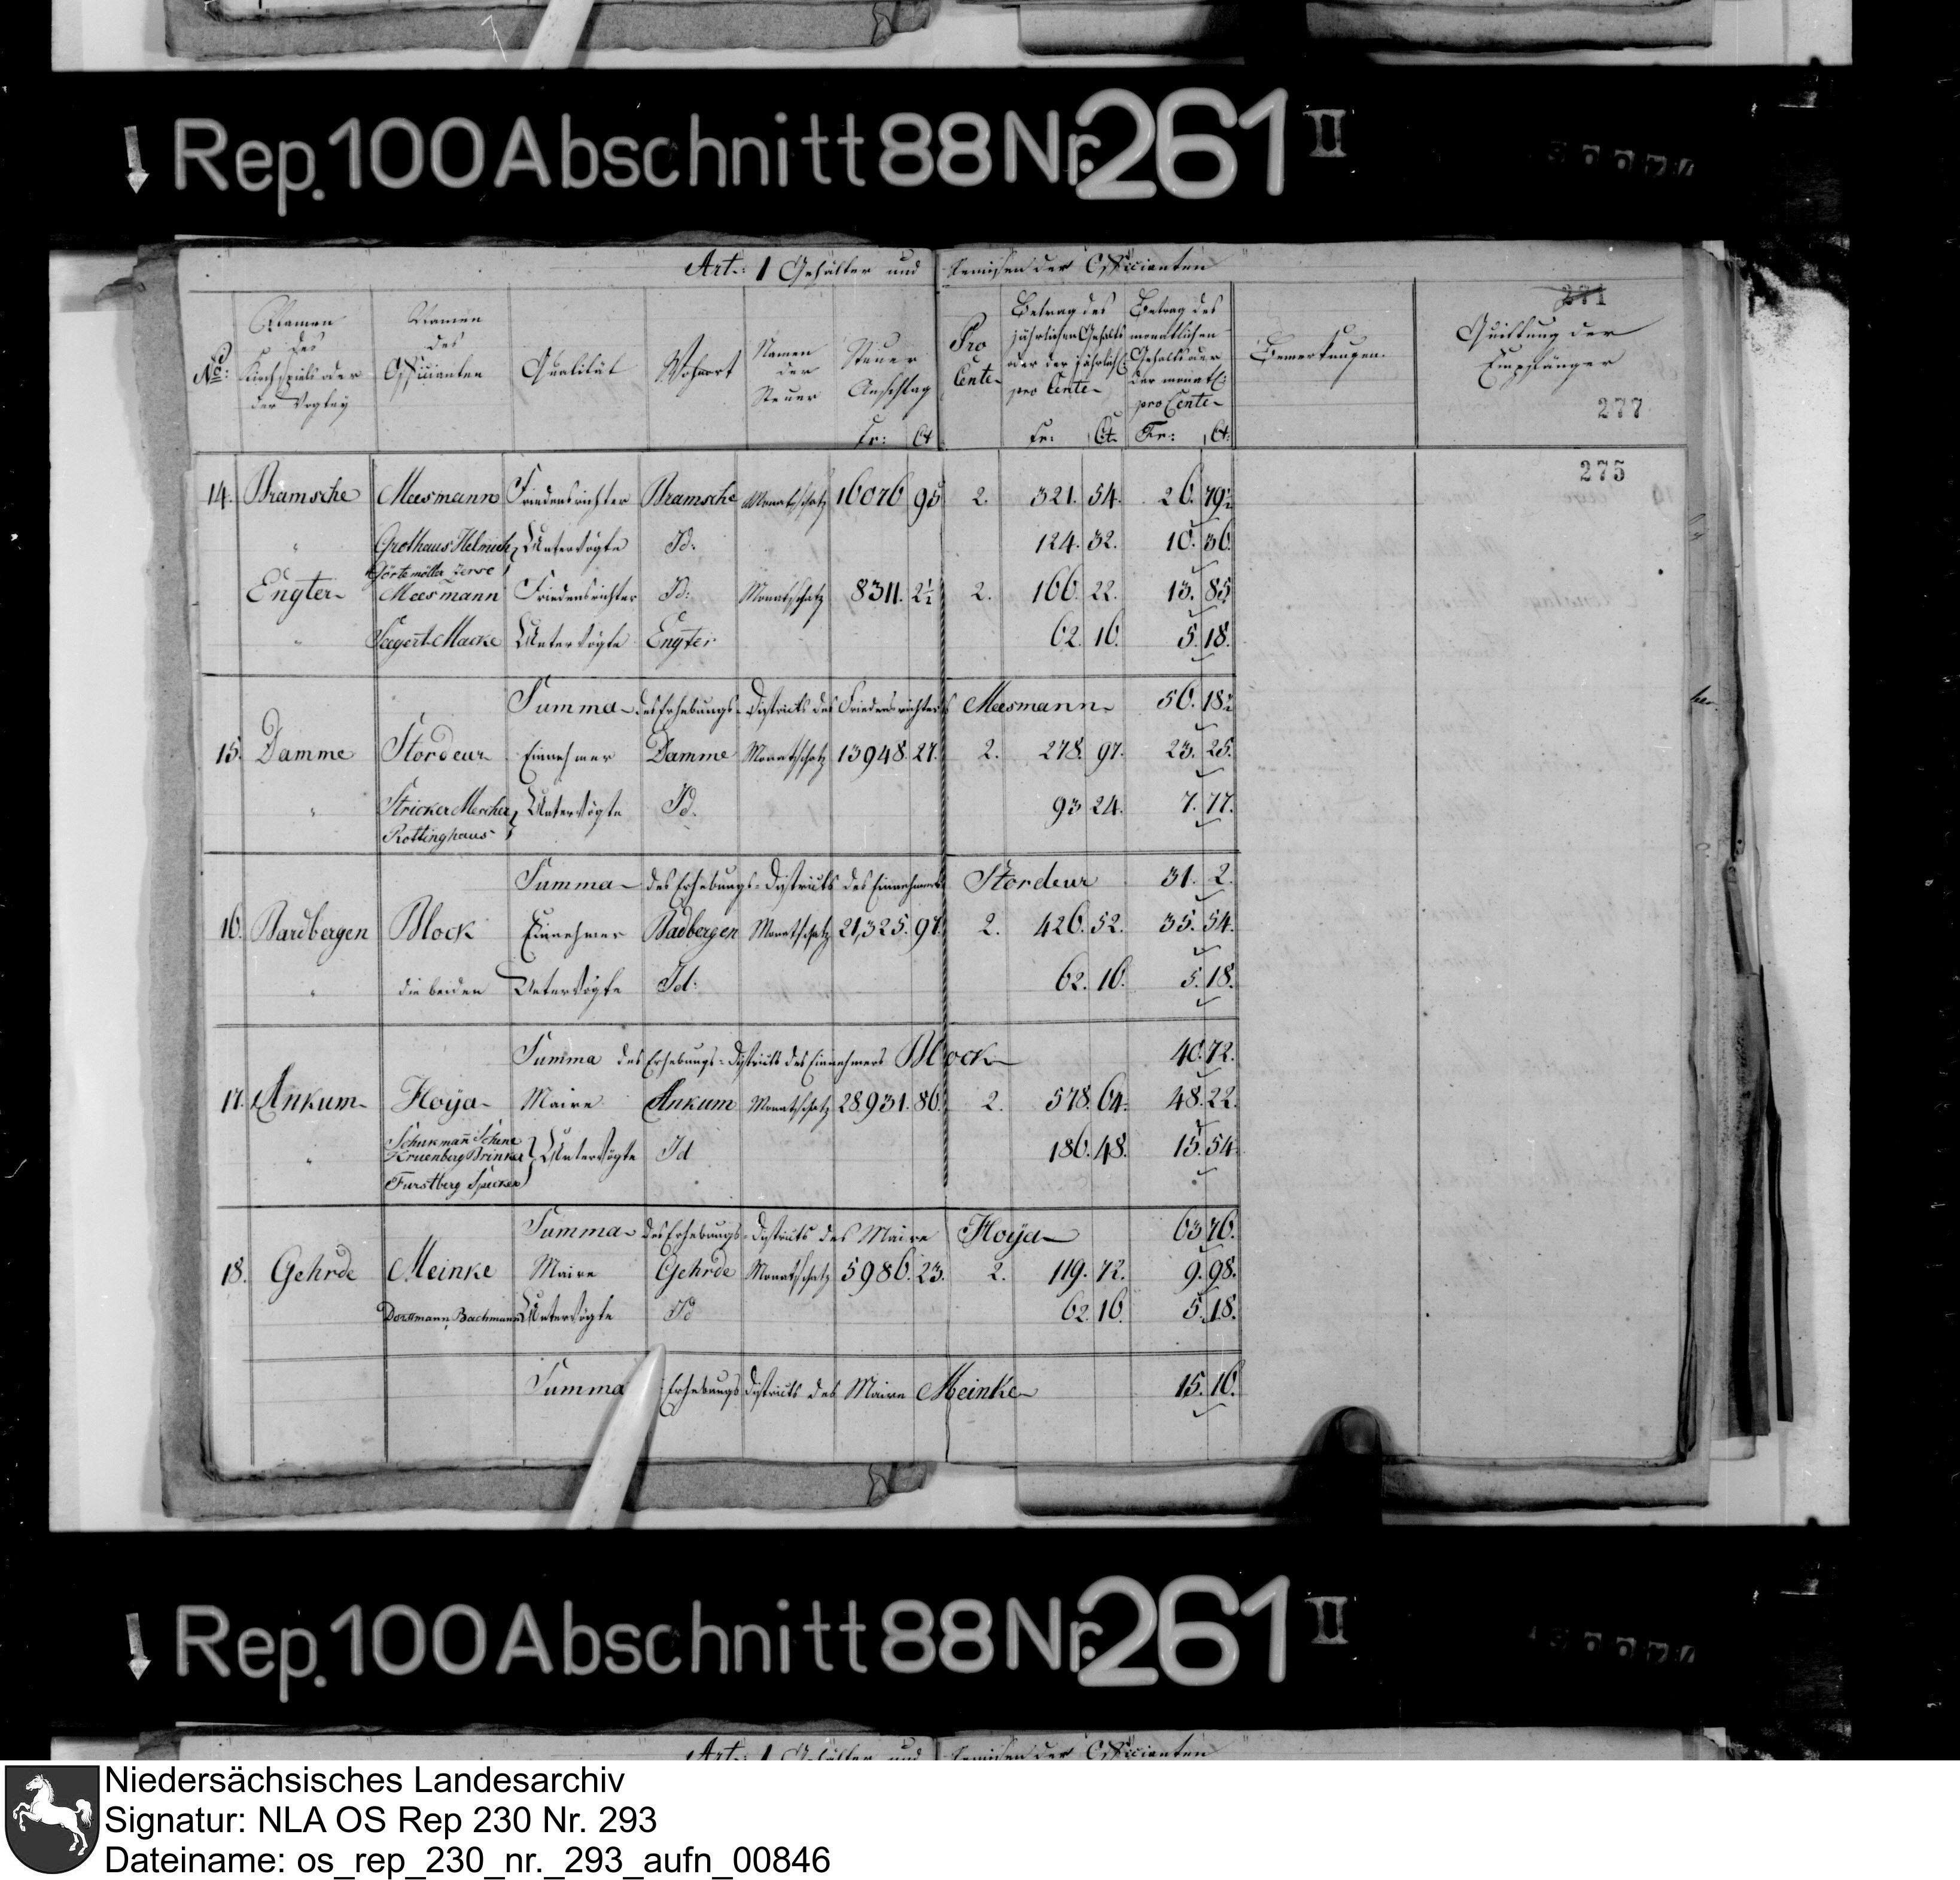 Rep. 100 Abschnitt 88 Nr. 261 II
Art. 1 Gehälter und Remisen der Officianten
271
No: Namen des Kirchspiels oder der Vogtey Namen des Officianten Qualität Wohnort Namen der Steuer Steuer Anschlag Fr: Ct Pro Cente Betrag des jährlichen Gehalts oder der jährlich: pro Cente Fr: Ct. Betrag des monatlichen Gehalts oder der monatl: pro Cente Fr: Ct. Bemerkungen. Quittung der Empfänger
277
275
14. Bramsche Meesmann Friedensrichter Bramsche Monatschatz 16076 95 2. 321. 54. 26. 79½
" Grothaus Helmich Untervögte Id: 124. 32. 10. 36.
Görtemöller
Engter Meesmann Friedensrichter Id: Monatschatz 8311. 2½ 2. 166. 22. 13. 85
" Macke Untervögte Engter 62. 16. 5. 18.
Summa des Erhebungs-Districts des Friedensrichters Meesmann 56. 18½
15. Damme Stordeur Einnehmer Damme Monatschatz 13948. 27. 2. 278. 97. 23. 25.
" Stricker Mescher Untervögte Id. 93 24. 7. 77.
Rottinghaus
Summa des Erhebungs-Districts des Einnehmers Stordeur 31. 2.
16. Bardbergen Block Einnehmer Badbergen Monatschatz 21,325. 97. 2. 426. 52. 35. 54.
" die beiden Untervögte Id: 62. 16. 5. 18.
Summa des Erhebungs-Districts des Einnehmers Block 40. 72.
17. Ankum Hoÿa Maire Ankum Monatschatz 28.931. 86. 2. 578. 64. 48. 22.
Schurmañ
" Kruenberg Brinker Untervögte Id 186. 48. 15. 54.
Furstberg Specker
Summa des Erhebungs-Districts des Maire Hoÿa 63 76.
18. Gehrde Meinke Maire Gehrde Monatschatz 5986. 23. 2. 119. 72. 9. 98.
Dorssmann, Bachmann Untervögte Id 62. 16. 5. 18.
Summa Erhebungs Districts des Maire Meinke 15. 16.
Rep. 100 Abschnitt 88 Nr. 261 II
Art. 1 Gehälter und Remisen der Officianten
Niedersächsisches Landesarchiv
Signatur: NLA OS Rep 230 Nr. 293
Dateiname: os_rep_230_nr._293_aufn_00846